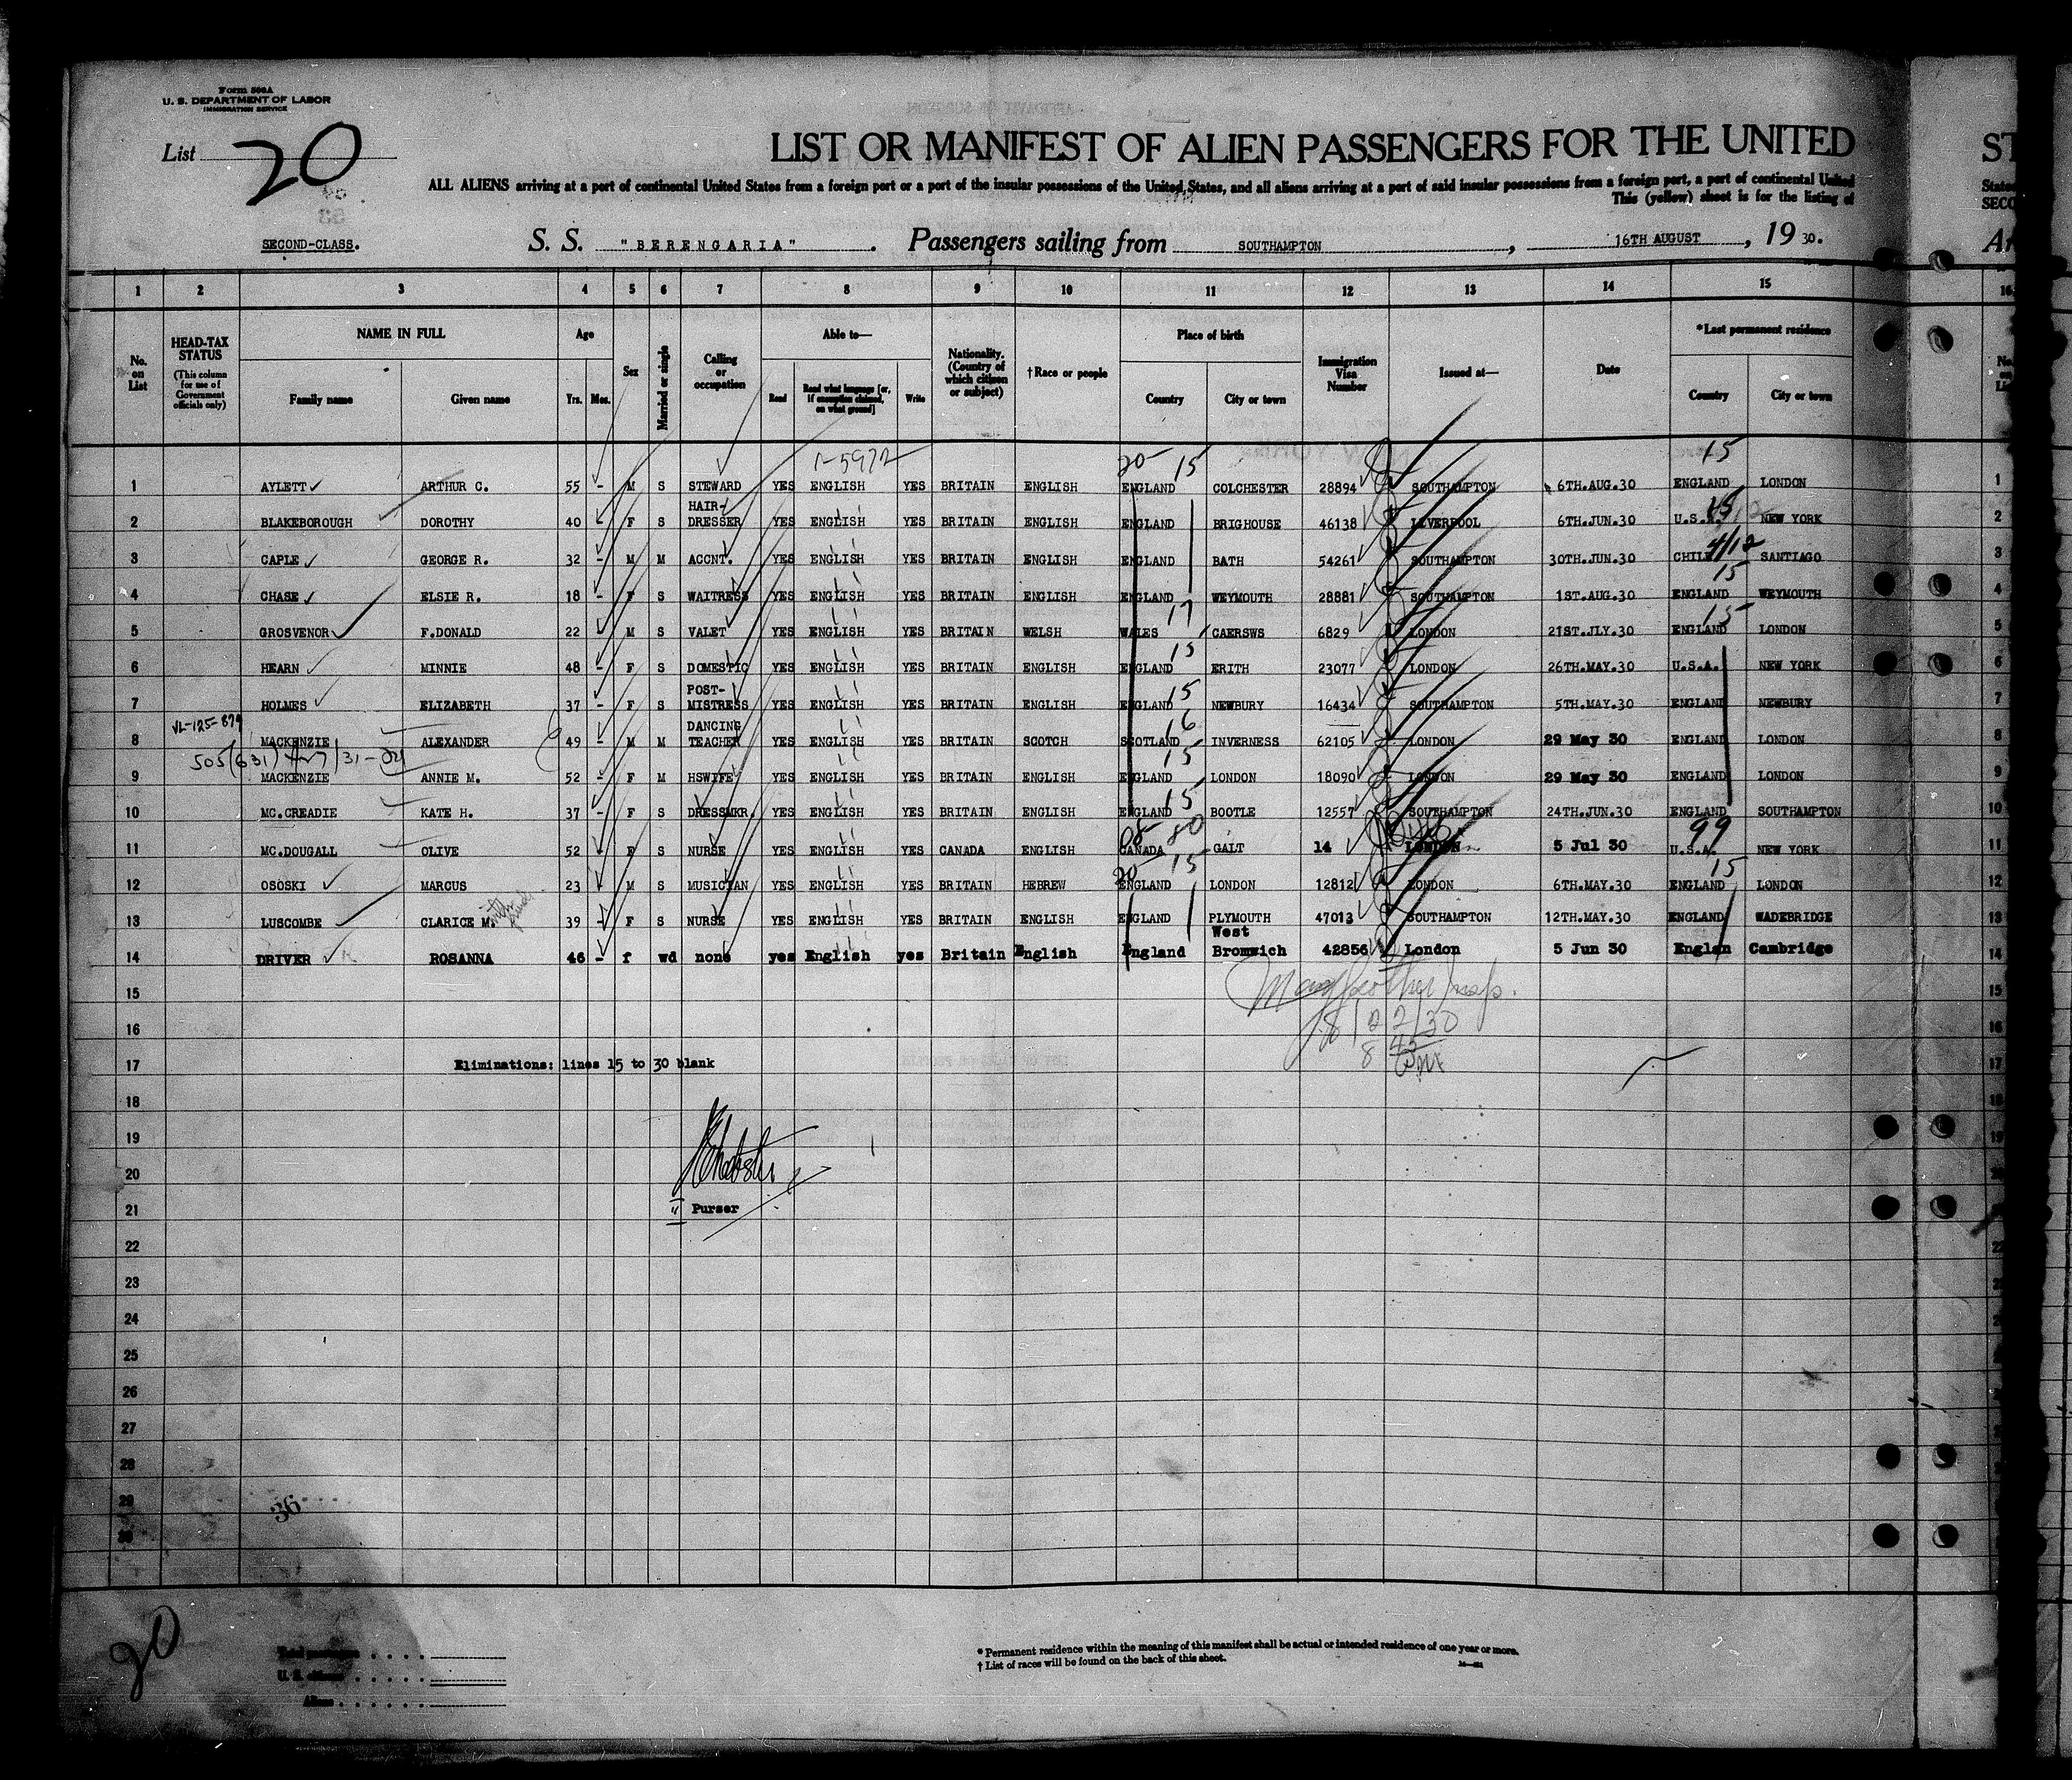 Form 500A
U. S. DEPARTMENT OF LABOR
IMMIGRATION SERVICE
List 20
LIST OR MANIFEST OF ALIEN PASSENGERS FOR THE UNITED
ST
ALL ALIENS arriving at a port of continental United States from a foreign port or a port of the insular possessions of the United States, and all aliens arriving at a port of said insular possessions from a foreign port, a port of continental United
States
This (yellow) sheet is for the listing of
SECO
SECOND-CLASS. S. S. "BERENGARIA". Passengers sailing from SOUTHAMPTON, 16TH AUGUST, 19 30.
Ar
1 2 3 4 5 6 7 8 9 10 11 12 13 14 15 16
No. on List
HEAD-TAX STATUS (This column for use of Government officials only)
NAME IN FULL Family name Given name
Age Yrs. Mos.
Sex
Married or single
Calling or occupation
Able to— Read Read what language [or, if exemption claimed, on what ground] Write
Nationality. (Country of which citizen or subject)
†Race or people
Place of birth Country City or town
Immigration Visa Number
Issued at—
Date
*Last permanent residence Country City or town
5972
20 15 15
1 AYLETT ARTHUR C. 55 - M S STEWARD YES ENGLISH YES BRITAIN ENGLISH ENGLAND COLCHESTER 28894 SOUTHAMPTON 6TH.AUG.30 ENGLAND LONDON 1
2 BLAKEBOROUGH DOROTHY 40 - F S HAIR-DRESSER YES ENGLISH YES BRITAIN ENGLISH ENGLAND BRIGHOUSE 46138 LIVERPOOL 6TH.JUN.30 U.S.A. NEW YORK 2
3 CAPLE GEORGE R. 32 - M M ACCNT. YES ENGLISH YES BRITAIN ENGLISH ENGLAND BATH 54261 SOUTHAMPTON 30TH.JUN.30 CHILE SANTIAGO 3
15
4 CHASE ELSIE R. 18 - F S WAITRESS YES ENGLISH YES BRITAIN ENGLISH ENGLAND WEYMOUTH 28881 SOUTHAMPTON 1ST.AUG.30 ENGLAND WEYMOUTH 4
17 15
5 GROSVENOR F.DONALD 22 - M S VALET YES ENGLISH YES BRITAIN WELSH WALES CAERSWS 6829 LONDON 21ST.JLY.30 ENGLAND LONDON 5
15
6 HEARN MINNIE 48 - F S DOMESTIC YES ENGLISH YES BRITAIN ENGLISH ENGLAND ERITH 23077 LONDON 26TH.MAY.30 U.S.A. NEW YORK 6
15
7 HOLMES ELIZABETH 37 - F S POST-MISTRESS YES ENGLISH YES BRITAIN ENGLISH ENGLAND NEWBURY 16434 SOUTHAMPTON 5TH.MAY.30 ENGLAND NEWBURY 7
16
8 MACKENZIE ALEXANDER 49 - M M DANCING TEACHER YES ENGLISH YES BRITAIN SCOTCH SCOTLAND INVERNESS 62105 LONDON 29 May 30 ENGLAND LONDON 8
15
9 MACKENZIE ANNIE M. 52 - F M HSWIFE YES ENGLISH YES BRITAIN ENGLISH ENGLAND LONDON 18090 LONDON 29 May 30 ENGLAND LONDON 9
15
10 MC.CREADIE KATE H. 37 - F S DRESSMKR. YES ENGLISH YES BRITAIN ENGLISH ENGLAND BOOTLE 12557 SOUTHAMPTON 24TH.JUN.30 ENGLAND SOUTHAMPTON 10
08 80 99
11 MC.DOUGALL OLIVE 52 F S NURSE YES ENGLISH YES CANADA ENGLISH CANADA GALT 14 LONDON 5 Jul 30 U.S.A. NEW YORK 11
20 15 15
12 OSOSKI MARCUS 23 M S MUSICIAN YES ENGLISH YES BRITAIN HEBREW ENGLAND LONDON 12812 LONDON 6TH.MAY.30 ENGLAND LONDON 12
13 LUSCOMBE CLARICE M. 39 - F S NURSE YES ENGLISH YES BRITAIN ENGLISH ENGLAND PLYMOUTH 47013 SOUTHAMPTON 12TH.MAY.30 ENGLAND WADEBRIDGE 13
14 DRIVER ROSANNA 46 - f wd none yes English yes Britain English England West Bromwich 42856 London 5 Jun 30 Englan Cambridge 14
15 15
8/22/30
16 16
8 45
17 Eliminations: lines 15 to 30 blank 17
18 18
19 19
20 20
21 Purser
22 22
23
24
25
26
27
28
29
30
36
20
Total passengers
U. S. citizens
Aliens
* Permanent residence within the meaning of this manifest shall be actual or intended residence of one year or more.
† List of races will be found on the back of this sheet.